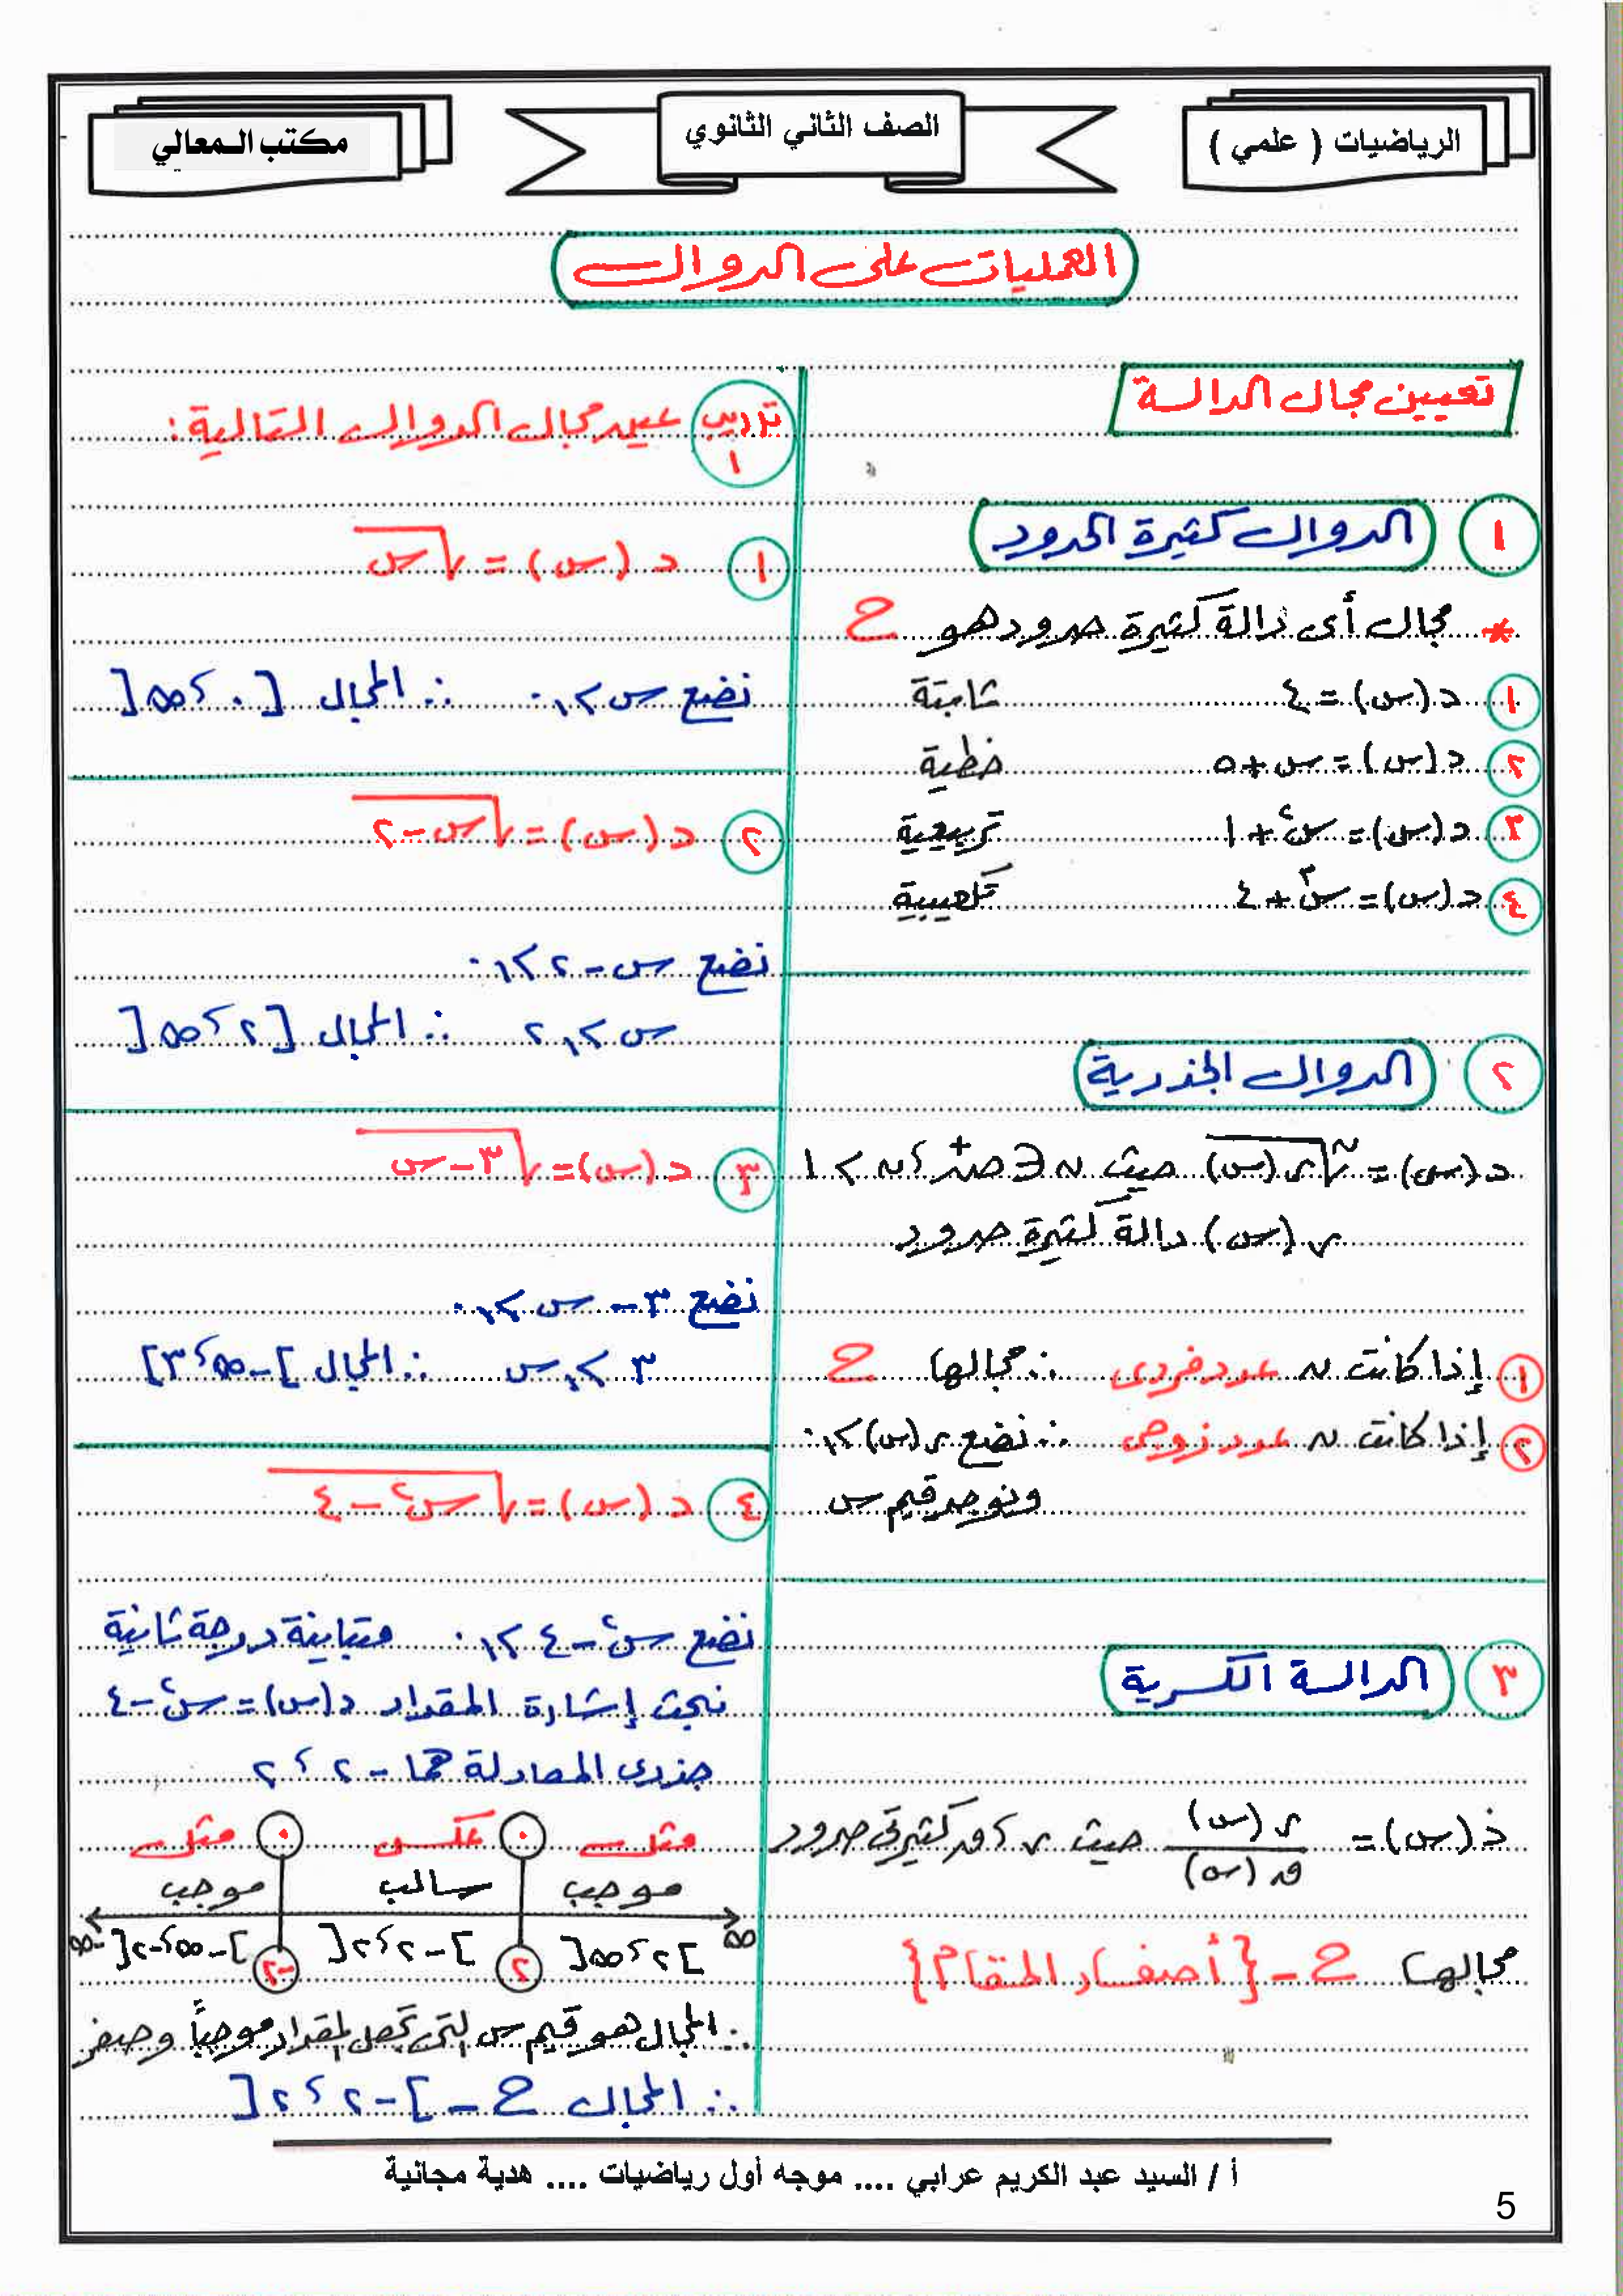 الرياضيات ( علمي )
الصف الثاني الثانوي
مكتب المعالي
العمليات على الدوال
تعيين مجال الدالة
١ الدوال كثيرة الحدود
* مجال أى دالة كثيرة حدود هو ح
١ د (س) = ٤ ثابتة
٢ د (س) = س + ٥ خطية
٣ د (س) = س² + ١ تربيعية
٤ د (س) = س³ + ٤ تكعيبية
٢ الدوال الجذرية
د (س) = ⁿ√ر (س) حيث ن ∈ ص⁺ ، ن > ١
ر (س) دالة كثيرة حدود
١ إذا كانت ن عدد فردى ∴ مجالها ح
٢ إذا كانت ن عدد زوجى ∴ نضع ر (س) ≥ ٠
ونوجد قيم س
٣ الدالة الكسرية
د (س) = ر (س) / ق (س) حيث ر ، ق كثيرتى حدود
مجالها ح - {أصفار المقام}
تدريب ١ عين مجال الدوال التالية :
١ د (س) = √س
نضع س ≥ ٠ ∴ المجال [٠ ، ∞[
٢ د (س) = √س - ٢
نضع س - ٢ ≥ ٠
س ≥ ٢ ∴ المجال [٢ ، ∞[
٣ د (س) = √٣ - س
نضع ٣ - س ≥ ٠
٣ ≥ س ∴ المجال ]-∞ ، ٣]
٤ د (س) = √س² - ٤
نضع س² - ٤ ≥ ٠ متباينة درجة ثانية
نبحث إشارة المقدار د (س) = س² - ٤
جذرى المعادلة هما - ٢ ، ٢
مثل ٠ عكس ٠ مثل
موجب سالب موجب
∞ ]٢ ، ∞[ ٢ ]-٢ ، ٢[ -٢ ]-∞ ، -٢[ -∞
∴ المجال هو قيم س التى تجعل المقدار موجباً وصفر
∴ المجال ح - ]-٢ ، ٢[
أ / السيد عبد الكريم عرابي .... موجه أول رياضيات .... هدية مجانية
5